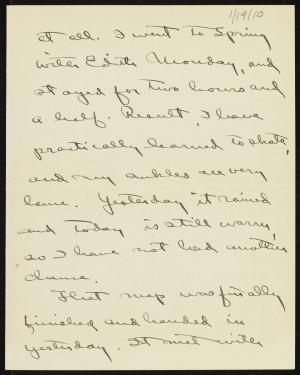 1/19/10
at all. I went to Spring
with Edith Monday, and
stayed for two hours and
a half. Result, I have
practically learned to skate,
and my ankles are very
lame. Yesterday it rained
and today is still warm,
so I have not had another
chance.
That map was finally
finished and handed in
yesterday. It met with